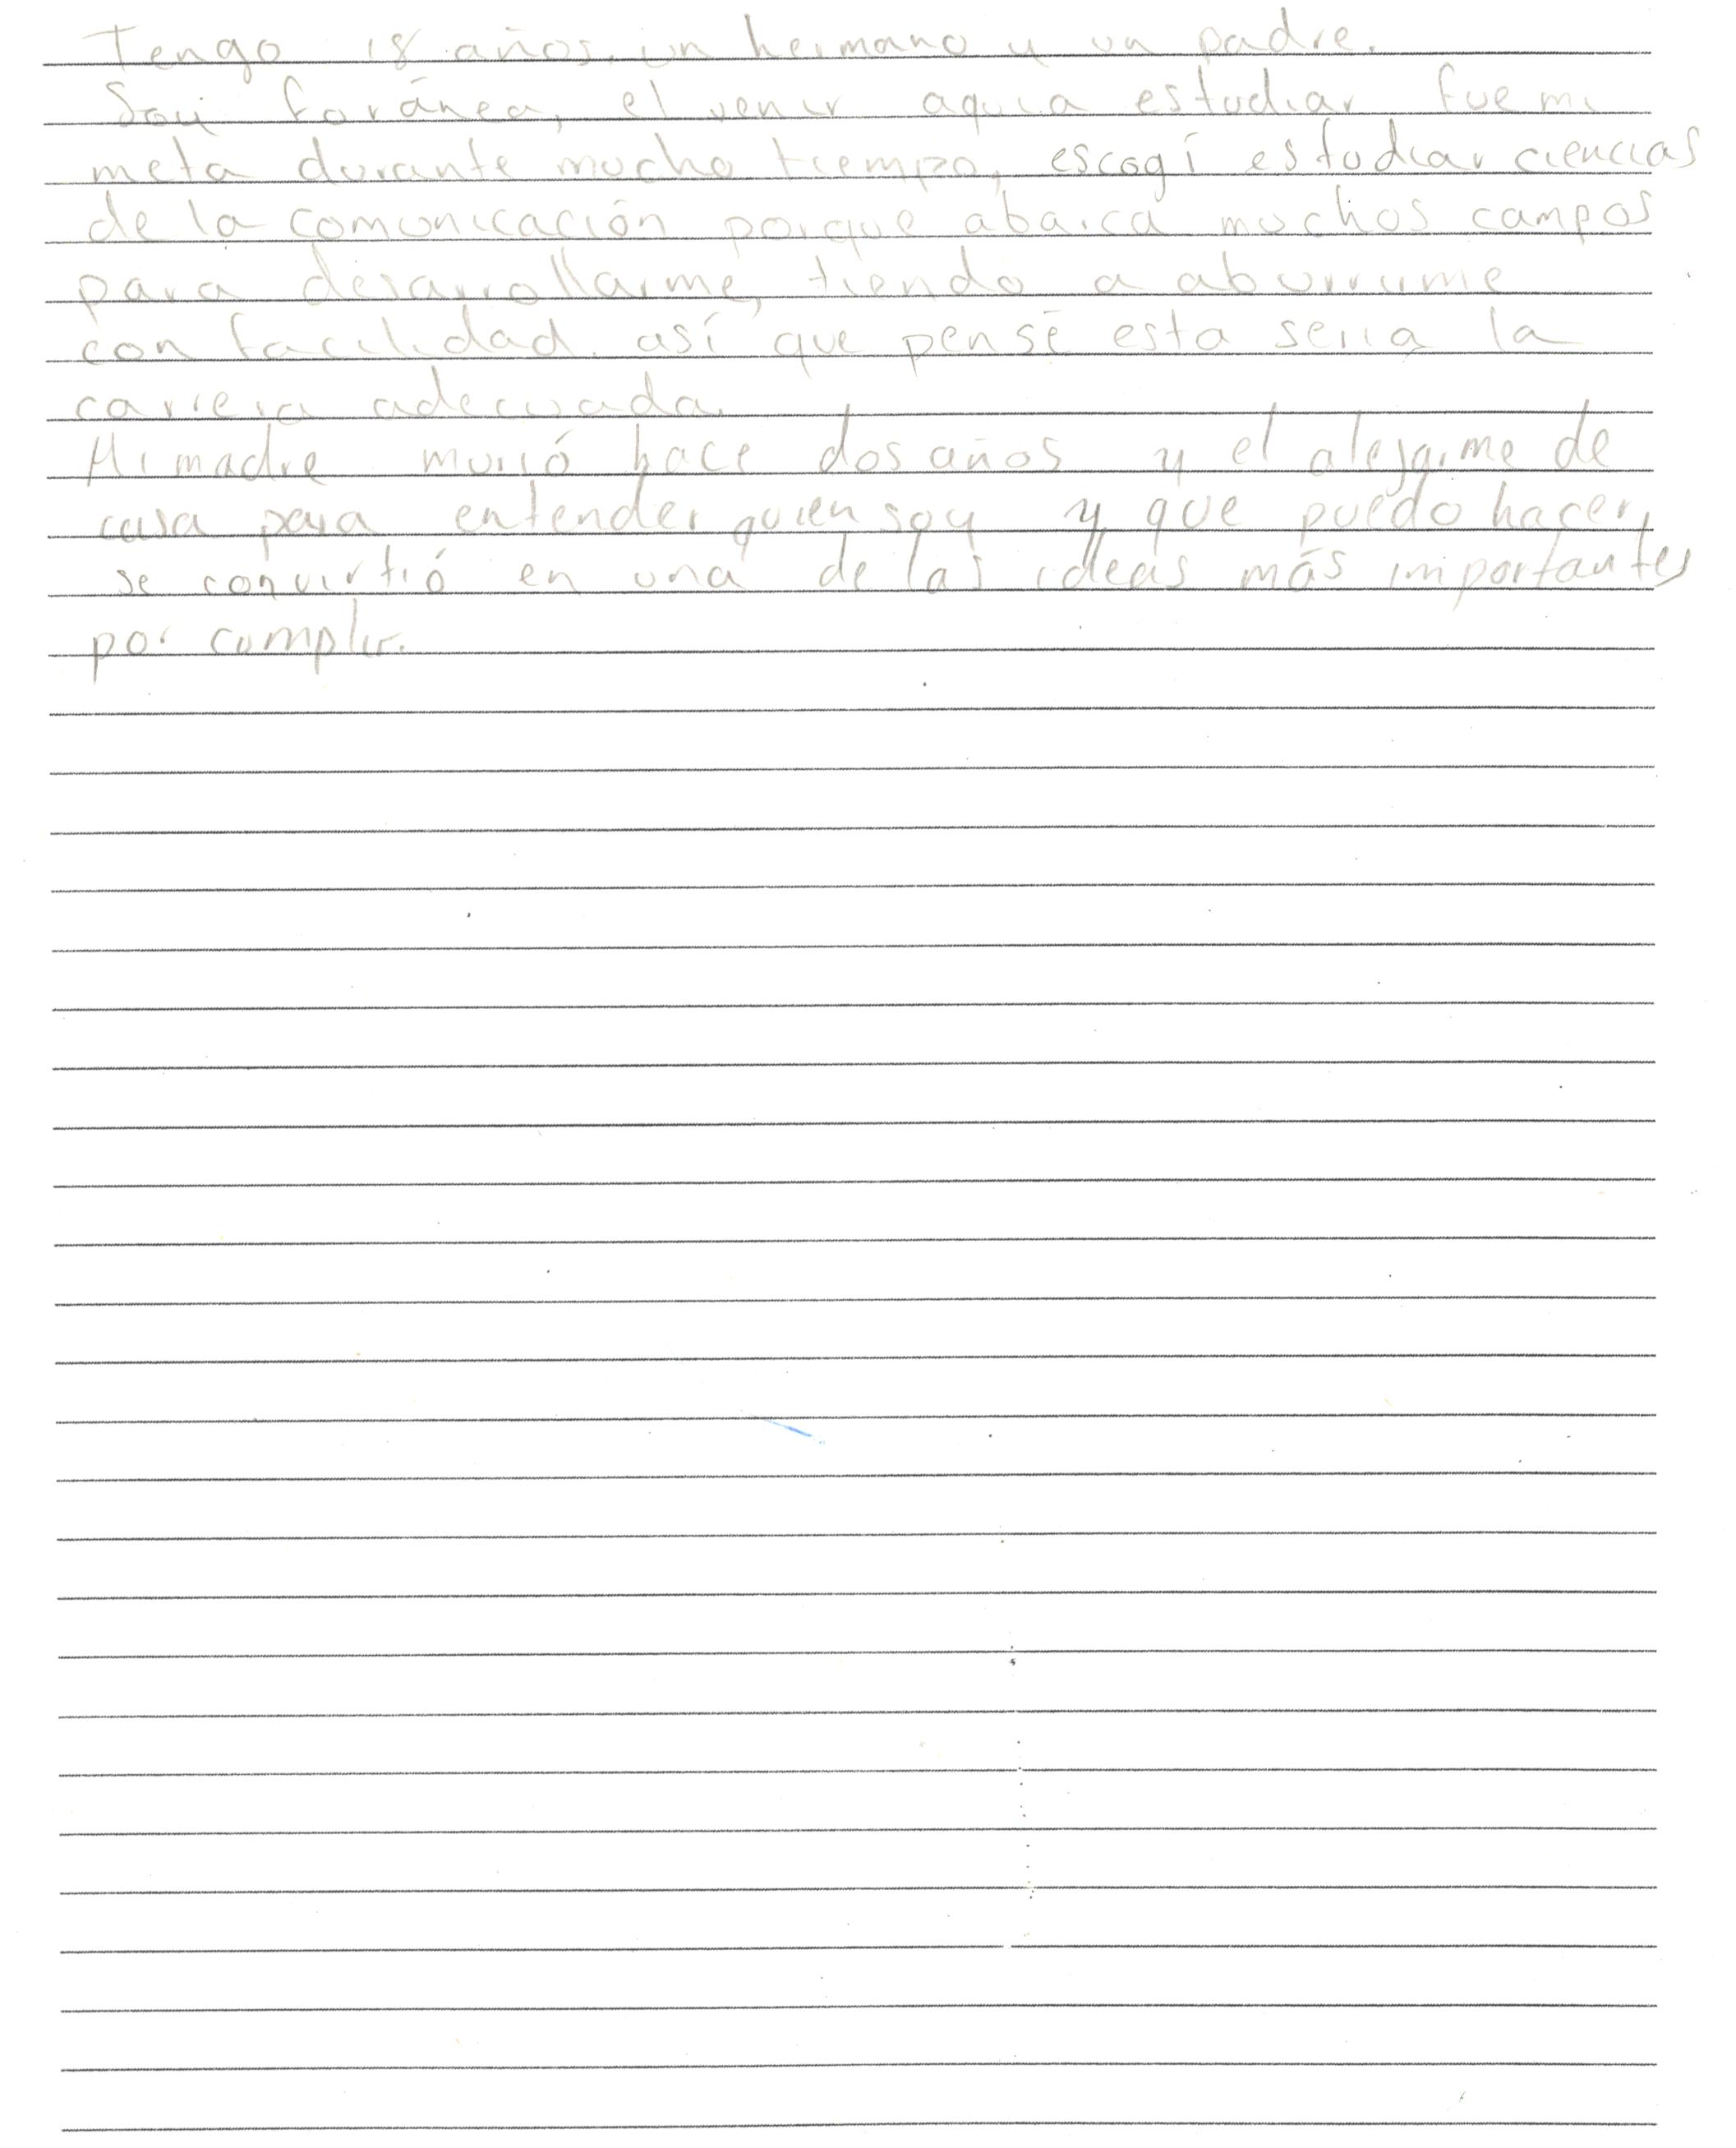 Tengo 18 años, un hermano y un padre.
Soy foránea, el venir aquí a estudiar fue mi
meta durante mucho tiempo, escogí estudiar ciencias
de la comunicación porque abarca muchos campos
para desarrollarme, tiendo a aburrirme
con facilidad, así que pensé esta seria la
carrera adecuada.
Mi madre murió hace dos años y el alejarme de
casa para entender quien soy y que puedo hacer,
se convirtió en una de las ideas más importantes
por cumplir.